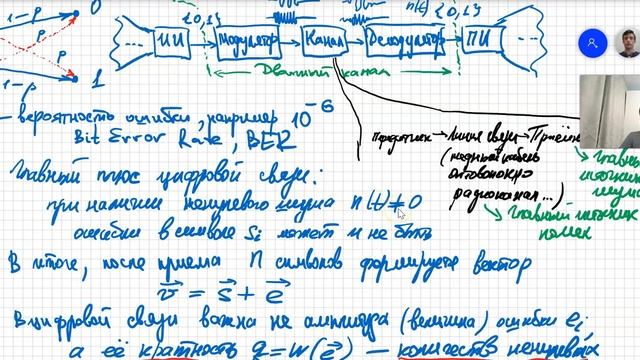 1-p
0
p
p
1-p
1
{0,1}
n(t)
{0,1}
... ИИ → Модулятор → Канал → Демодулятор → ПИ ...
Двоичный канал
— вероятность ошибки, например 10⁻⁶
Bit Error Rate, BER
Передатчик → Линия связи → Приёмн
(медный кабель
оптоволокно
радиоканал...)
Главный источник
помех
Главный плюс цифровой связи:
при наличии ненулевого шума n(t)≠0
ошибки в символе Si может и не быть
В итоге, после приема n символов формируется вектор
v = s + e
В цифровой связи важна не амплитуда (величина) ошибки ei,
а её кратность q=w(e) — количество ненулевых